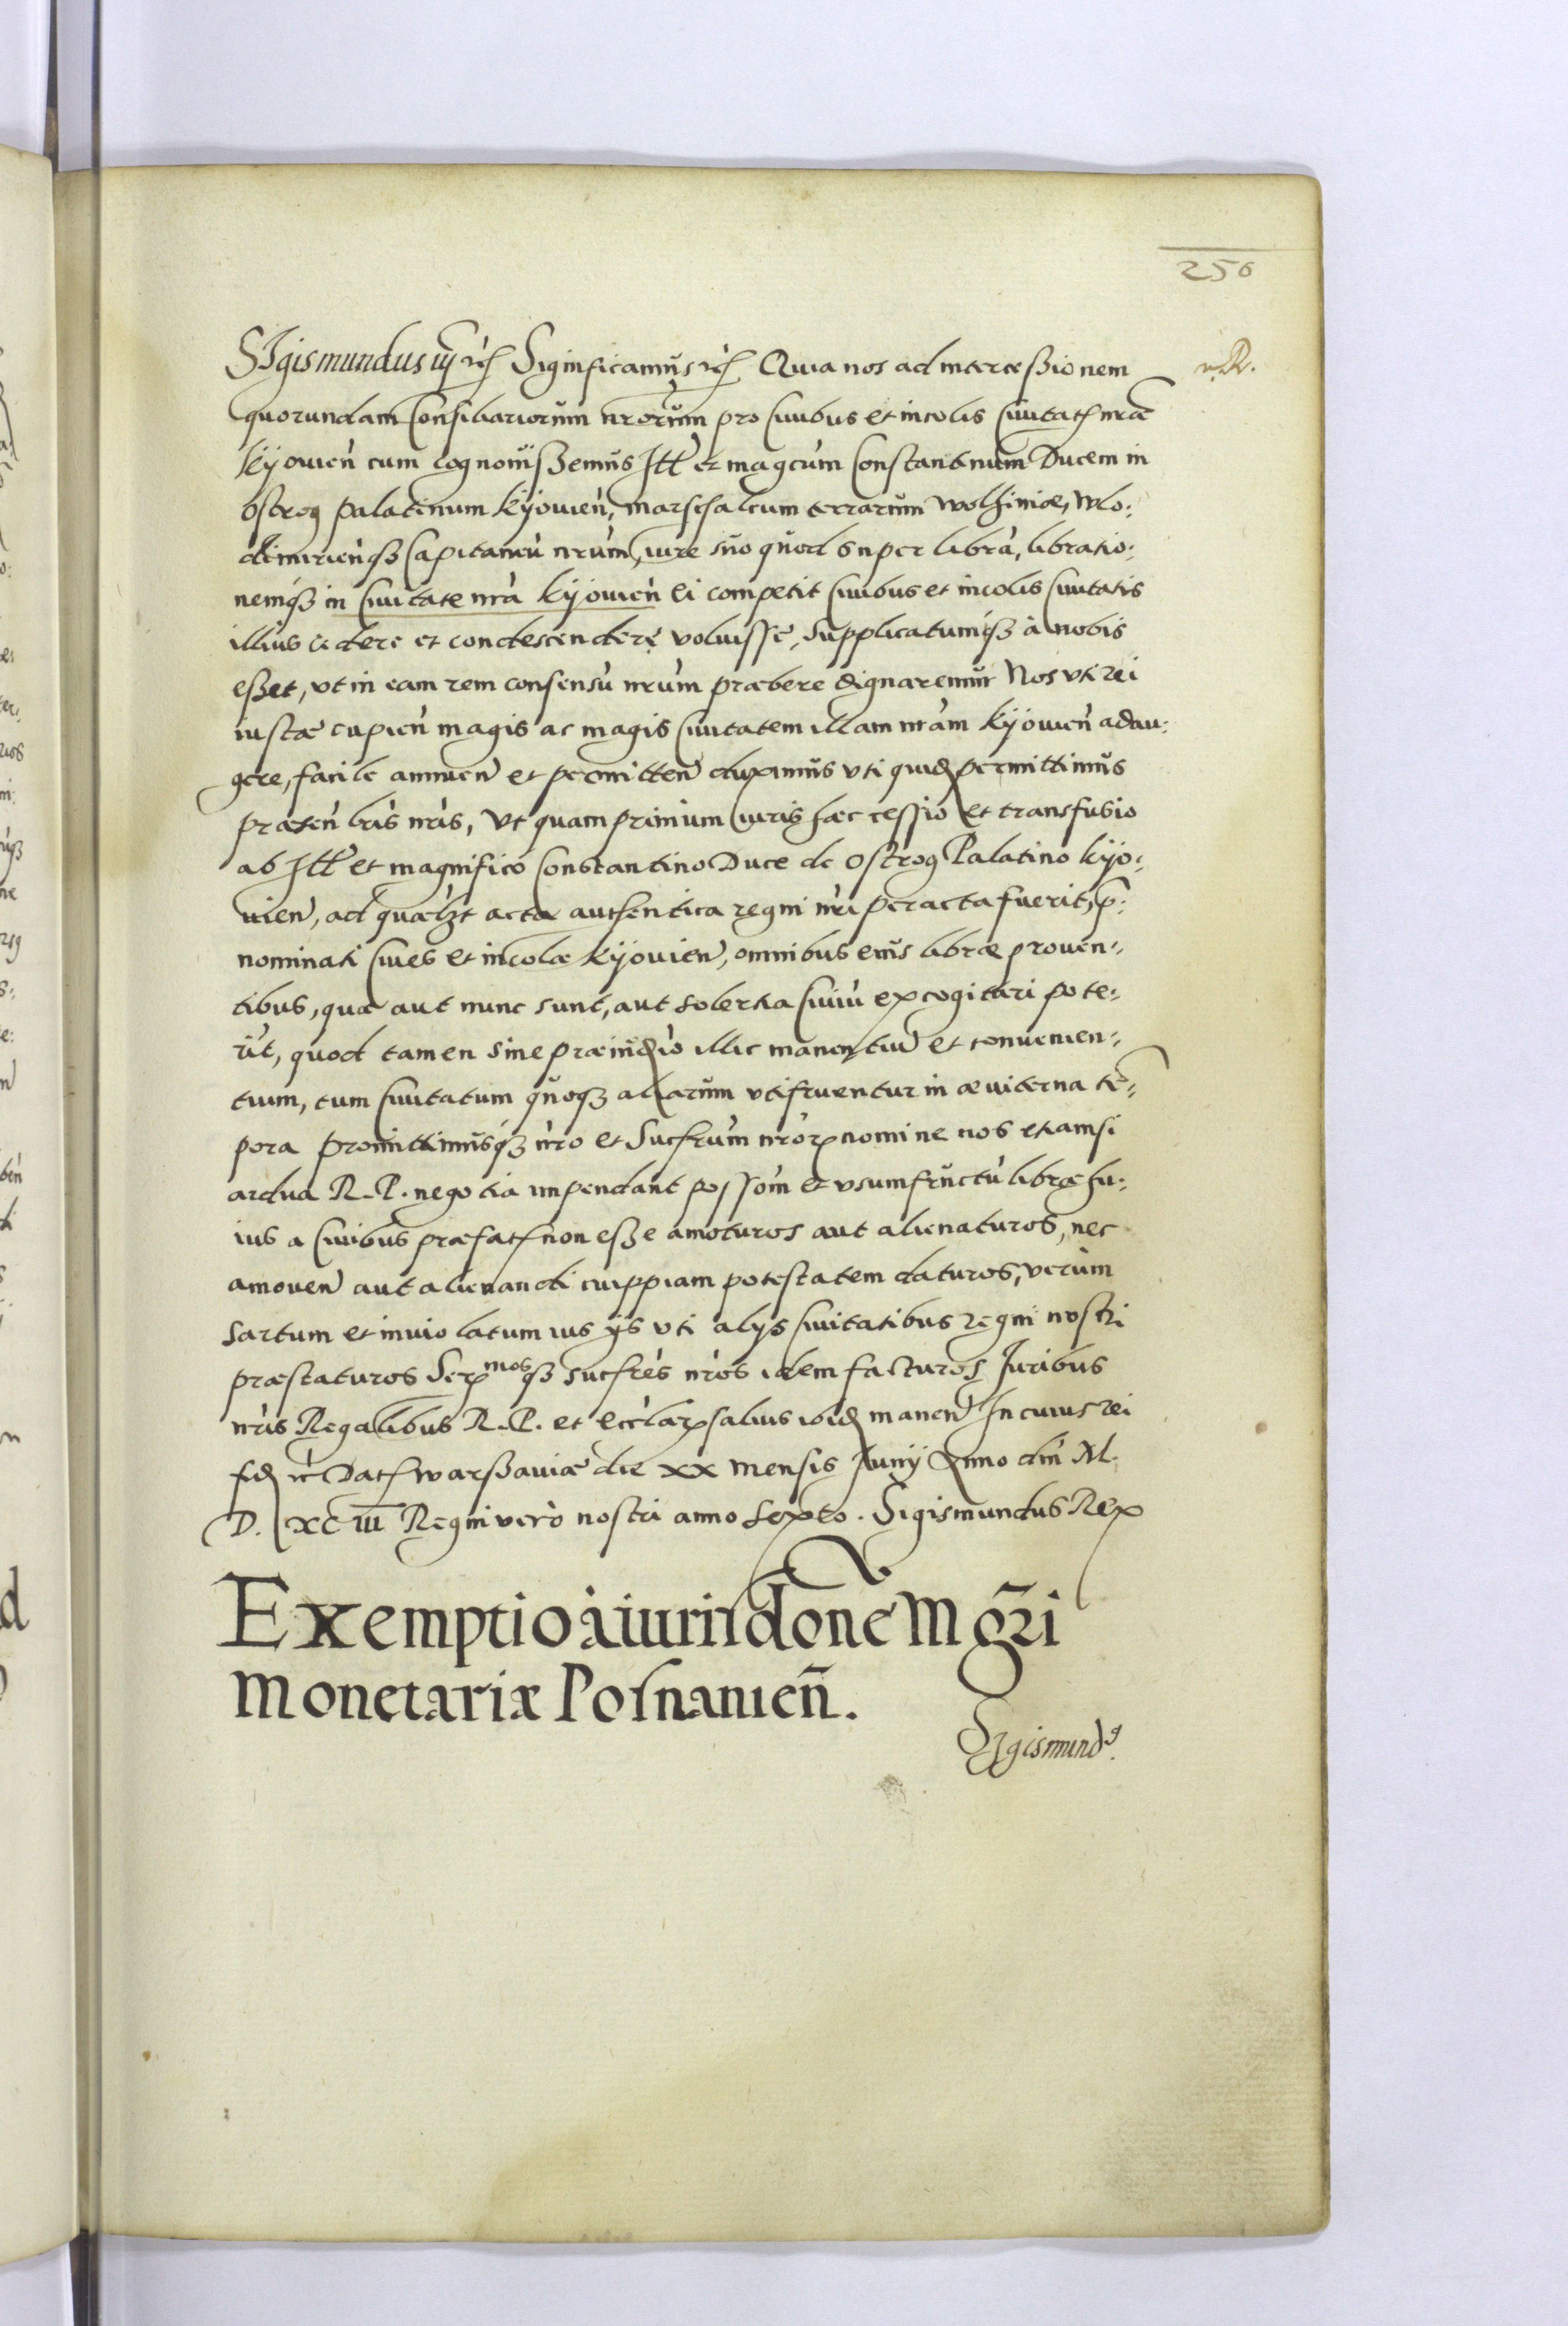 250
SIgismundus iij etc Significamus etc Quia nos ad intercessionem
quorundam Consiliariorum nrorum pro Ciuibus et incolis Ciuitatis nrae
Kyouien cum cognouissemus Ill et magcum Constantinum Ducem in
Ostrog Palatinum Kyouien, marschalcum terrarum wolhiniae, Wlo:
dimirienq Capitaneu nrum, iure suo quod super libra, libratio:
nemq in Ciuitate nra Kyouien ei competit Ciuibus et incolis Ciuitatis
illius cedere et condescendere voluisse, Supplicatumq à nobis
esset, vt in eam rem consensu nrum praebere dignaremur Nos vti rei
iustae cupien magis ac magis Ciuitatem illam nram Kyouien adau:
gere, facile annuen et permitten duximus vti quid permittimus
praesen lris nris, Vt quam primum iuris haec cessio et transfusio
ab Ill et magnifico Constantino Duce de Ostrog Palatino Kyo:
uien, ad quaelzt acta authentica regni nri peracta fuerit, p:
nominati Ciues et incolae Kyouien, omnibus eius librae prouen:
tibus, quae aut nunc sunt, aut solertia Ciuiu excogitari pote:
rut, quod tamen sine praeiudio illic manentiu et conuenien:
tium, cum Ciuitatum quoq aliarum vtifruentur in aeuiterna te:
pora Promittimusq nro et Succrum nror nomine nos etiamsi
ardua R. P. negotia impendant possom et vsumfructu librae hu:
ius a Ciuibus praefat non esse amoturos aut alienaturos, nec
amouen aut alienandi cuippiam potestatem daturos, verum
sartum et inuiolatum ius ijs vti alijs Ciuitatibus regni nostri
praestaturos Ser mos q succres nros idem facturos Iuribus
nris Regalibus R. P. et Ecclar saluis ibid manen In cuius rei
fid etc Dat Warssauiae die XX mensis Iunij Anno dni M.
D. XC iii Regni vero nostri anno sexto. Sigismundus Rex
Exemptio à iurisdone Mgri
Monetariae Posnanien.
SIgismund9.